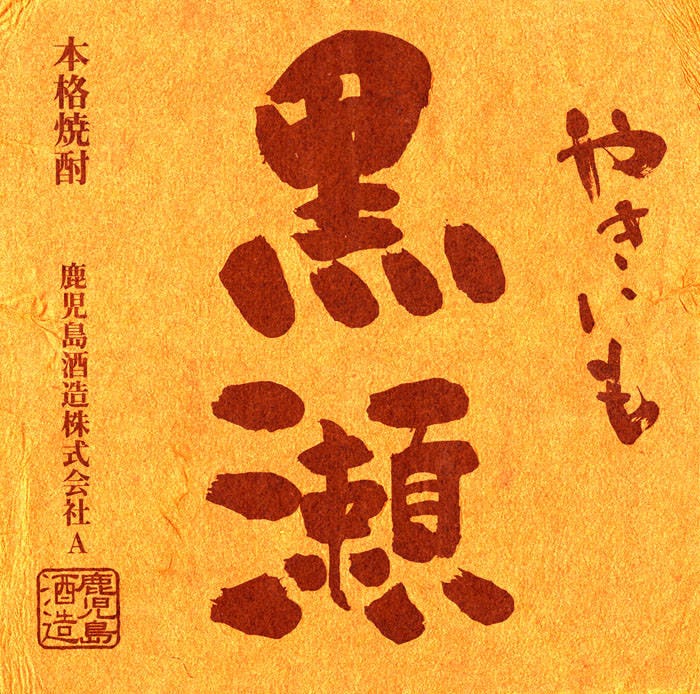 やきいも
黒瀬
本格焼酎
鹿児島酒造株式会社 A
鹿児島
酒造